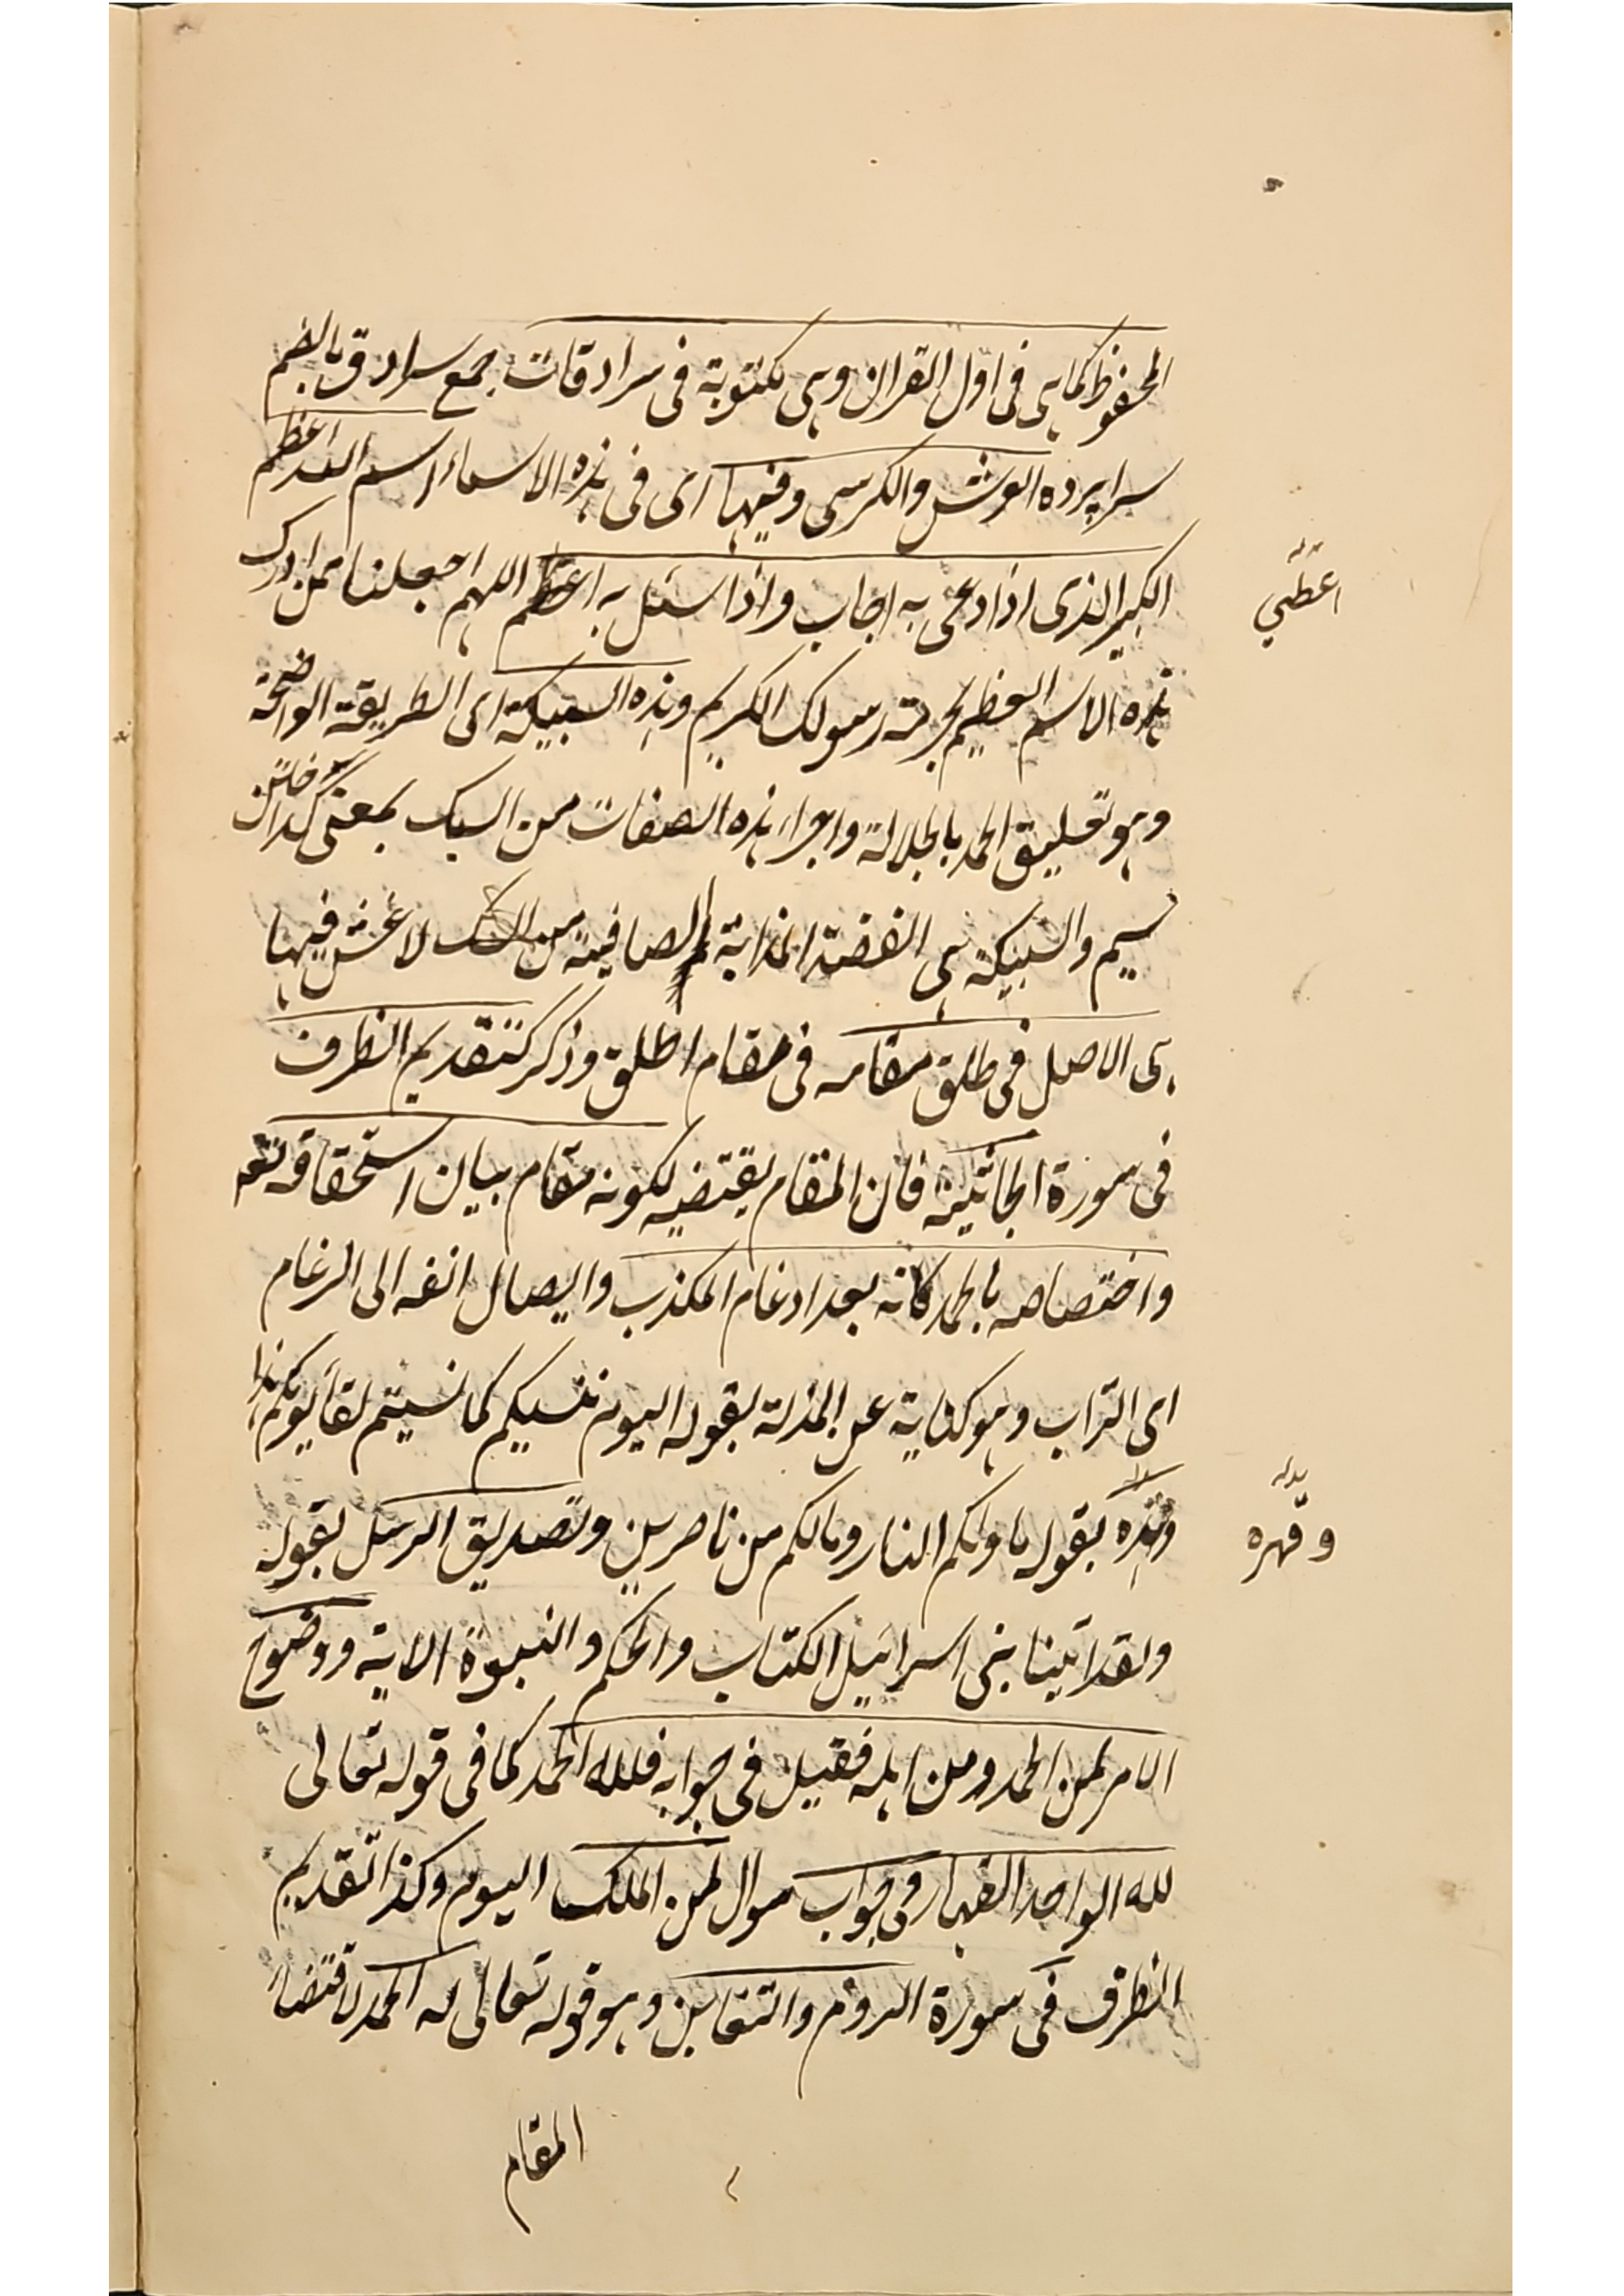 المحفوظ كما هى فى اول القران وهى مكتوبة فى سرادقات جمع سرادق بالضم
سراپرده العرش والكرسى وفيها اى فى هذه الاسماء اسم الله اعظم
الكبير الذى اذا دعى به اجاب واذا سئل به اعظم اللهم اجعلنا ممن ادرك
اعطى
هذه الاسم العظيم بحرمة رسولك الكريم وهذه السبيكة اى الطريقة الواضحة
وهو تعليق الحمد بالجلالة واجراء هذه الصفات من السبك بمعنى كداختن
سيم والسبيكة هى الفضة المذابة الصافية من لا غش فيها
هى الاصل فى طلق مقامه فى مقام اطلق وذكر كتقديم الظرف
فى سورة الجاثية فان المقام يقتضيه لكونه مقام بيان استحقاقه تعه
واختصاصه بالحمد كانه بعد ادغام المكذب وايصال انفه الى الرغام
اى التراب وهو كناية عن المذلة بقوله اليوم ننسيكم كما نسيتم لقاء يومكم هذا
بقوله ماويكم النار ومالكم من ناصرين وتصديق الرسل بقوله
وقهره
ولقد اتينا بنى اسرائيل الكتاب والحكم والنبوة الاية ووضوح
الامر لمن الحمد ومن اهله فقيل فى جوابه فلله الحمد كما فى قوله تعالى
لله الواحد القهار فى جواب سوال لمن الملك اليوم وكذا تقديم
الظرف فى سورة الروم والتغابن وهو قوله تعالى له الحمد لاقتضاء
المقام